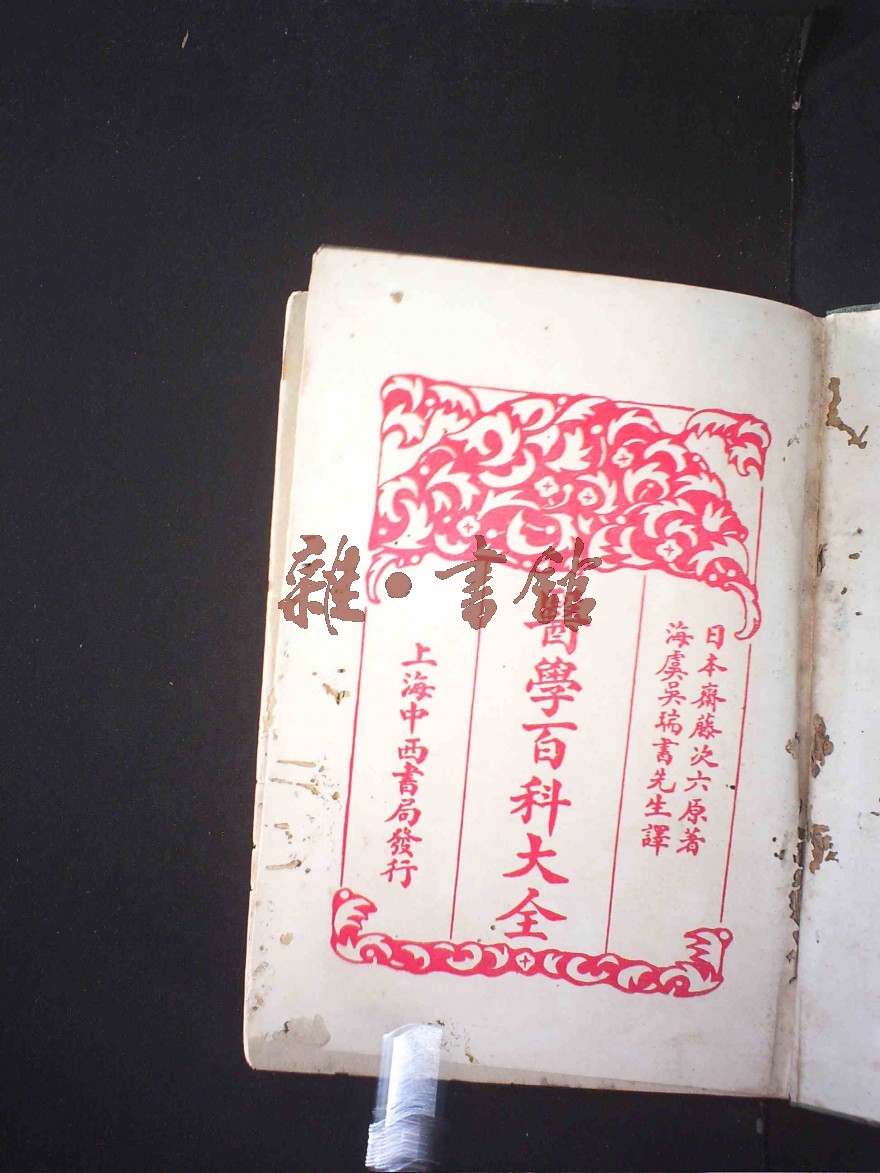 日本齋藤次六原著
海虞吳瑞書先生譯
醫學百科大全
上海中西書局發行
雜·書館